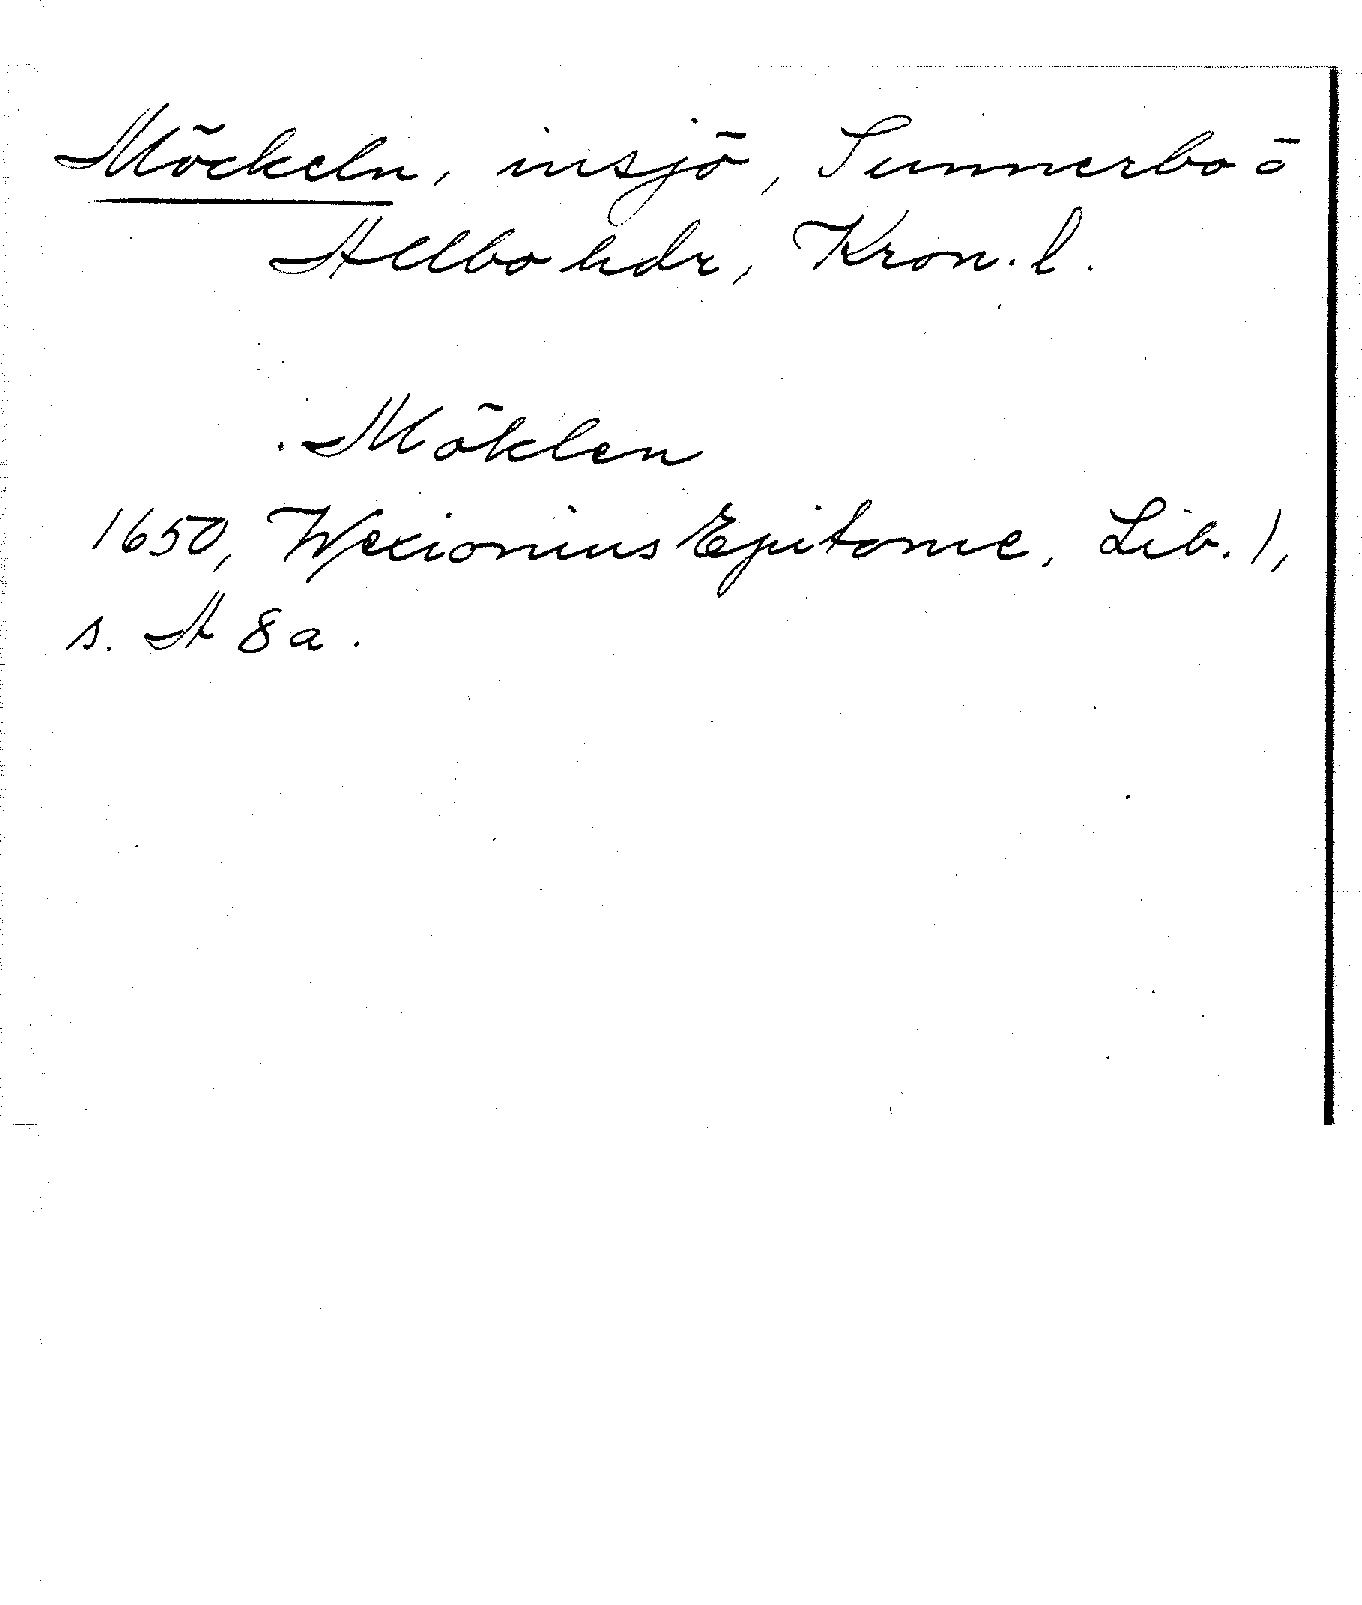 Möckeln, insjö, Sunnerbo o
Allbo hdr, Kron. l.
Möklen
1650, Wexionius Epitome, Lib. 1,
s. A 8 a.